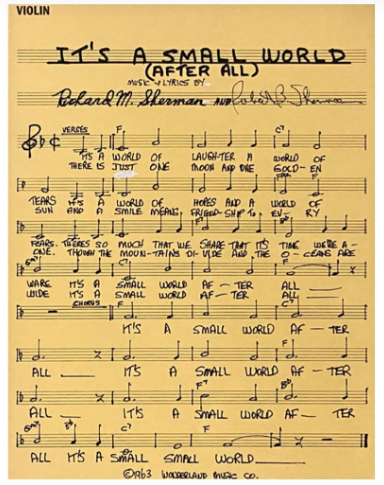 VIOLIN
IT'S A SMALL WORLD
(AFTER ALL)
MUSIC & LYRICS BY
Richard M. Sherman AND Robert B. Sherman
VERSES F C7
IT'S A WORLD OF LAUGH-TER A WORLD OF
THERE IS JUST ONE MOON AND ONE GOLD-EN
F
TEARS IT'S A WORLD OF HOPES AND A WORLD OF
SUN AND A SMILE MEANS FRIEND-SHIP TO EV-RY
FEARS. THERE'S SO MUCH THAT WE SHARE THAT IT'S TIME WE'RE A-
ONE. THOUGH THE MOUN-TAINS DI-VIDE AND THE O-CEANS ARE
Gm7 C7 F
WARE IT'S A SMALL WORLD AF-TER ALL
WIDE IT'S A SMALL WORLD AF-TER ALL
CHORUS F C7
IT'S A SMALL WORLD AF-TER
C7 F
ALL IT'S A SMALL WORLD AF-TER
F7 Bb
ALL IT'S A SMALL WORLD AF-TER
Gm7 Bb C7 F
ALL IT'S A SMALL SMALL WORLD
©1963 WONDERLAND MUSIC CO.